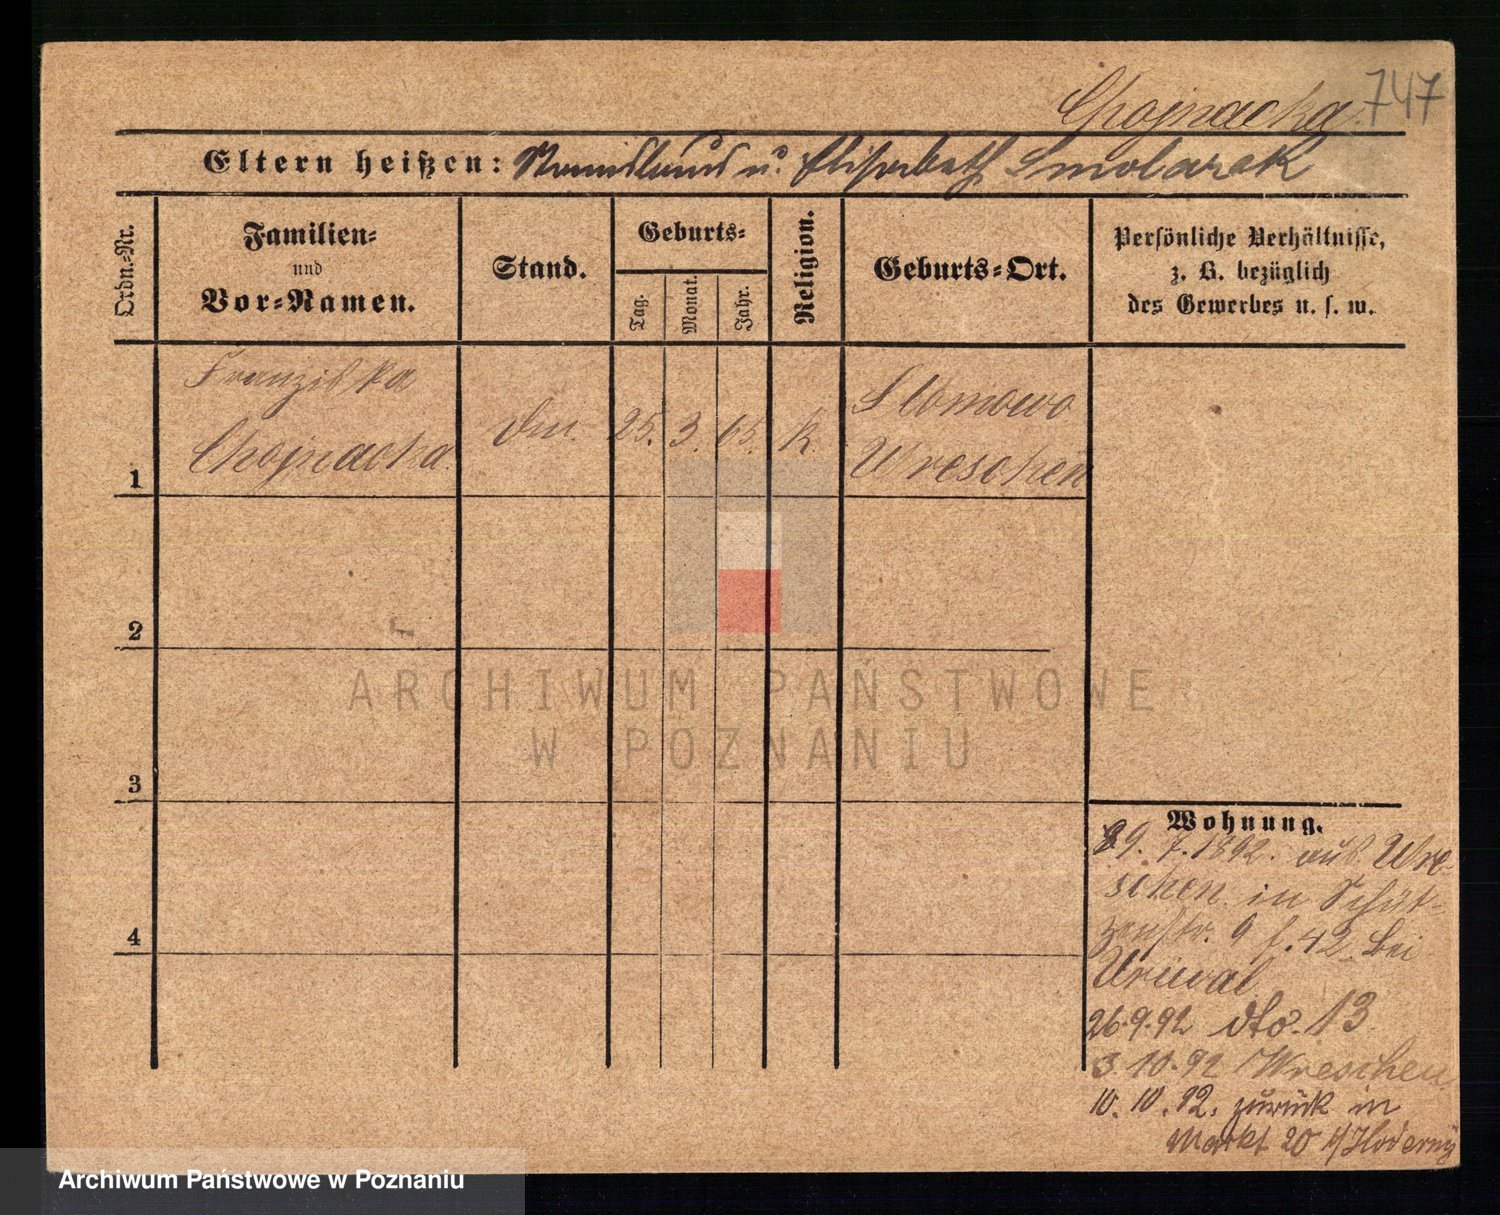 Chojnacka
747
Eltern heißen: Stanislaus u. Elisabeth Smolarek
Ordn.-Nr.
Familien-
und
Vor-Namen.
Stand.
Geburts-
Tag.
Monat.
Jahr.
Religion.
Geburts-Ort.
Persönliche Verhältnisse,
z. B. bezüglich
des Gewerbes u. s. w.
1
Franziska
Chojnacka
25. 3. 65. K.
Wreschen
2
3
4
Wohnung.
29. 7. 1892. aus Wre-
schen in Schüt-
zenstr. 9 f. 42 bei
26.9.92 dto. 13
3.10.92 Wreschen
10.10.92. zurück in
Markt 20
ARCHIWUM PAŃSTWOWE
W POZNANIU
Archiwum Państwowe w Poznaniu